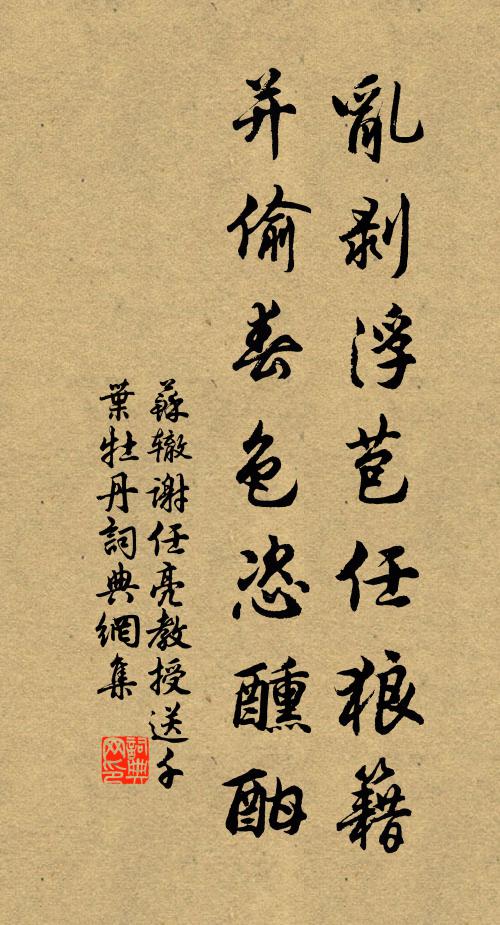 亂剥浮苞任狼籍
并偷春色恣醺酣
蘇辙谢任亮教授送千
葉牡丹詞典網集
詞典网印